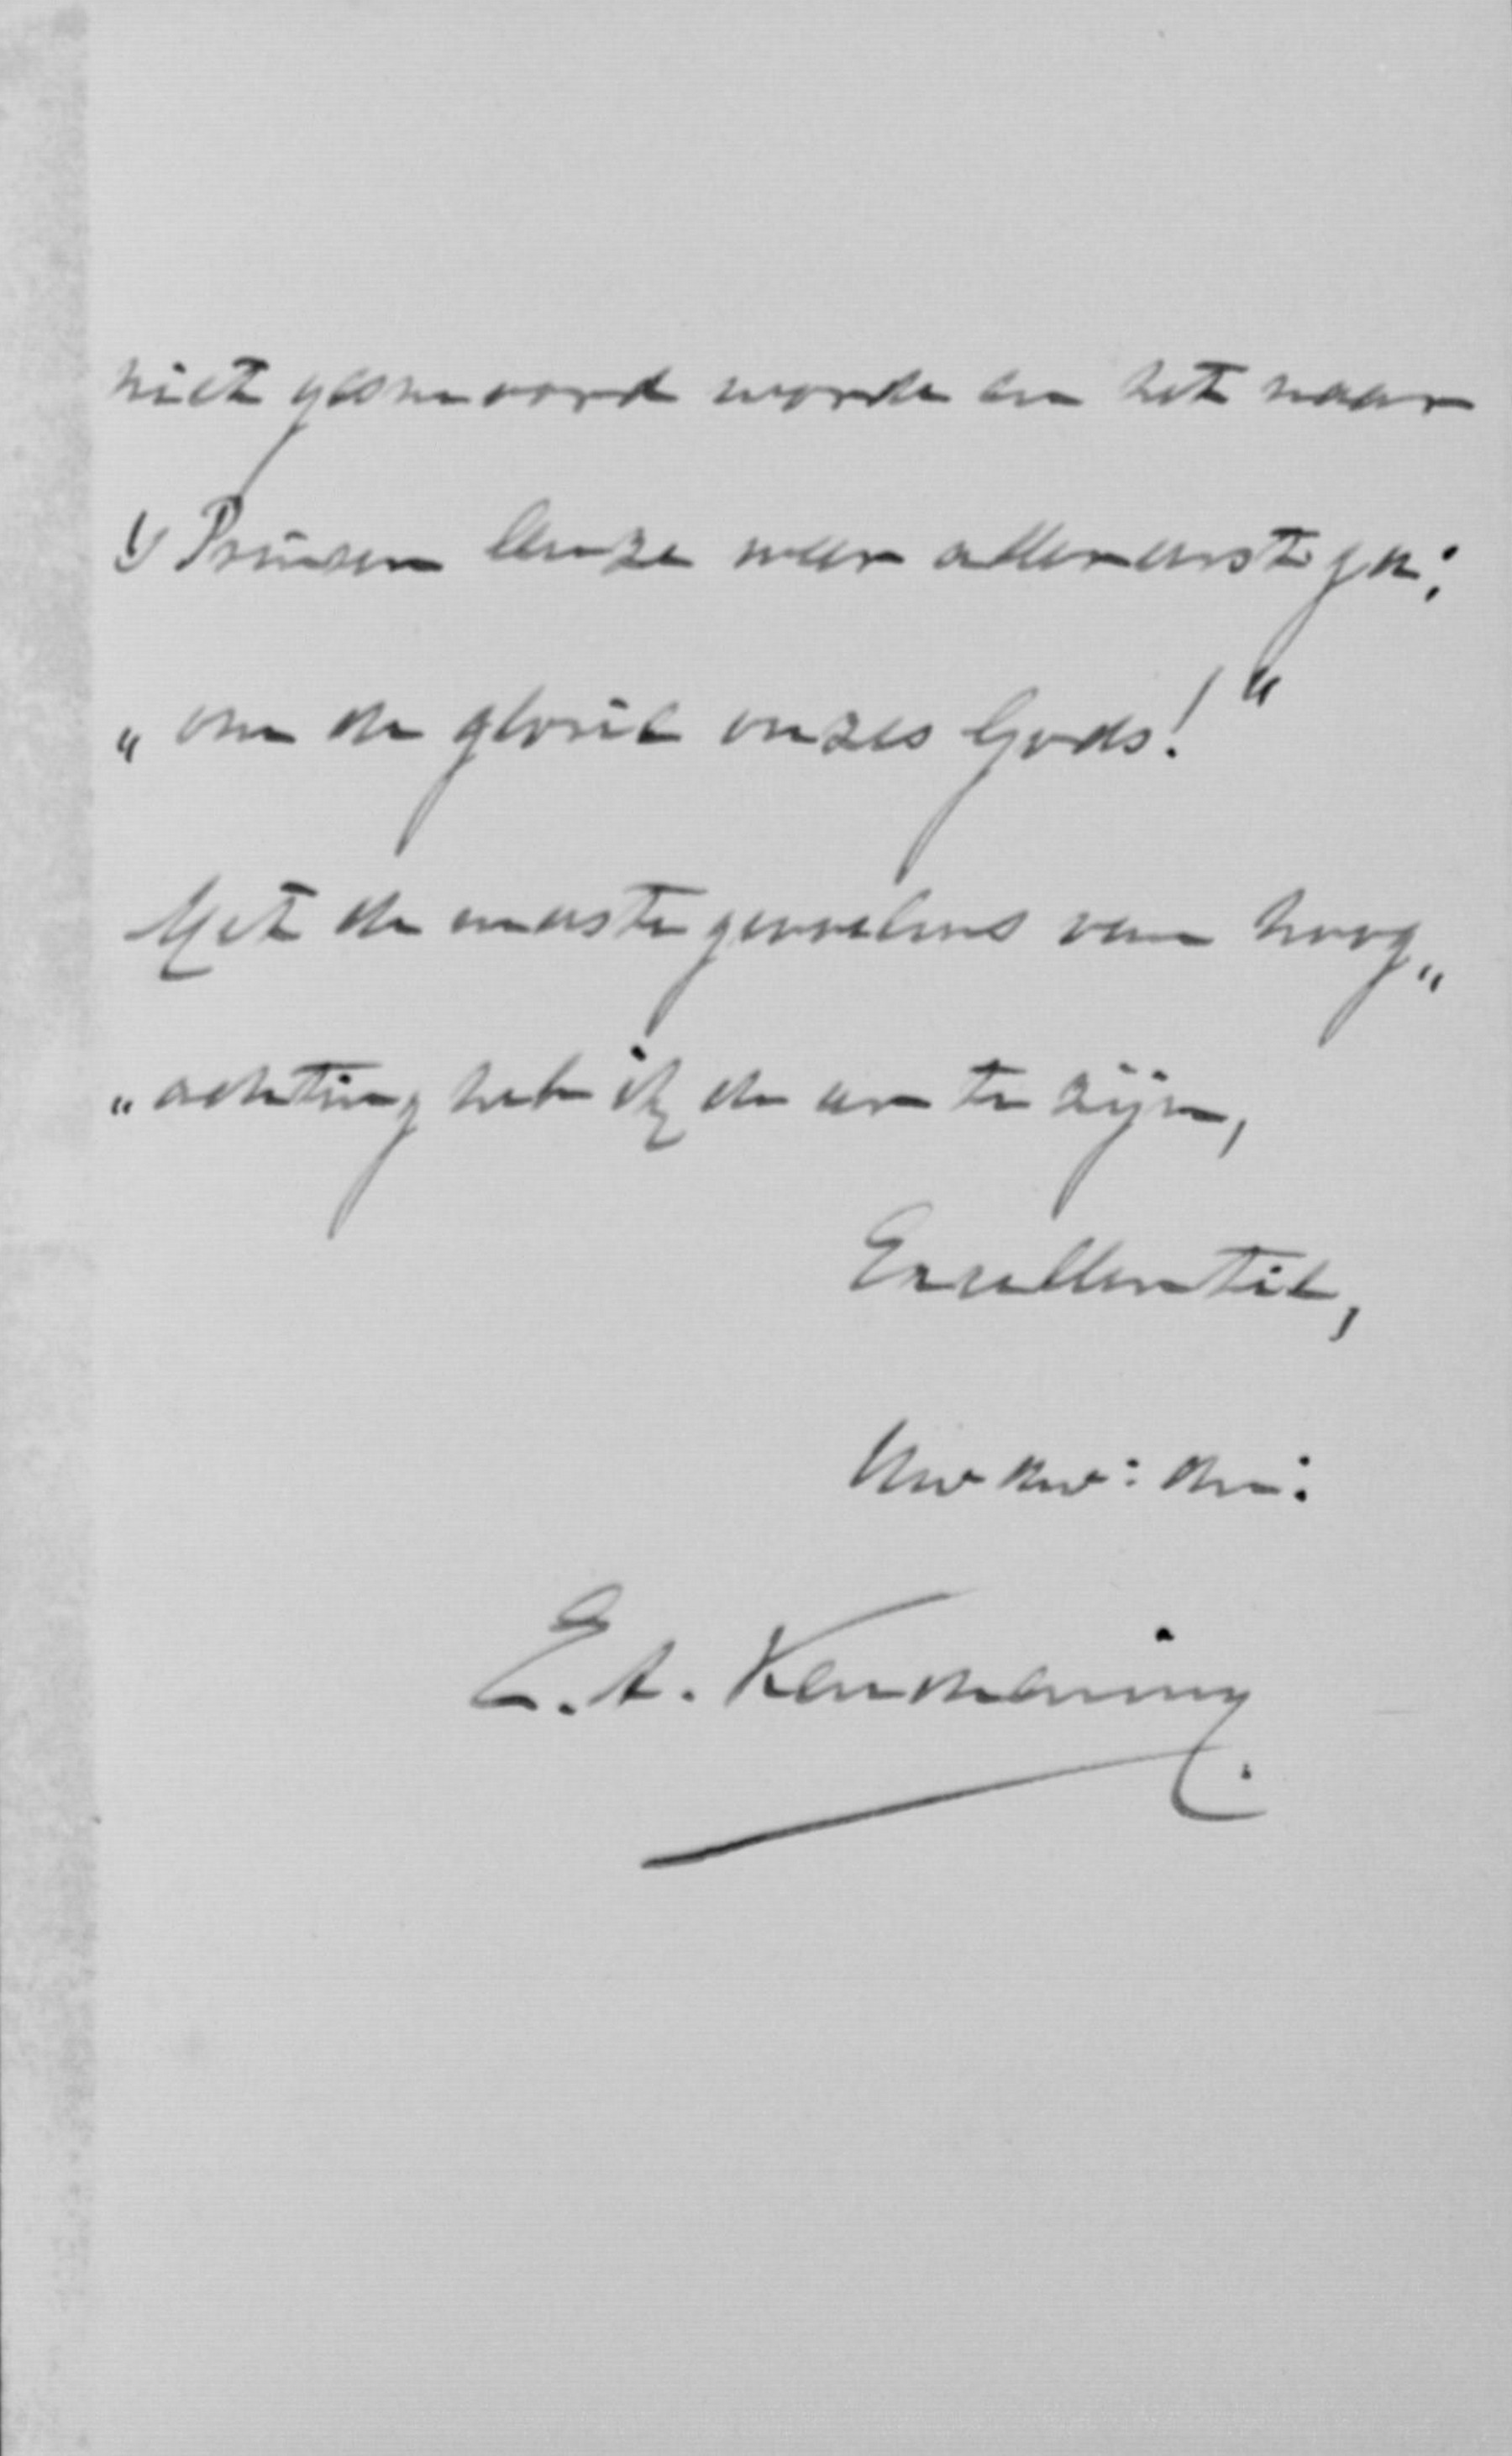 niet gesmoord worde en het naar
's Prinsen leuze weer allereerst ga:
„om de glorie onzes Gods!“
Met de meeste gevoelens van hoog„
„achting heb ik de eer te zijn,
Excellentie,
Uw dw: dn:
E. A. Keuchenius.